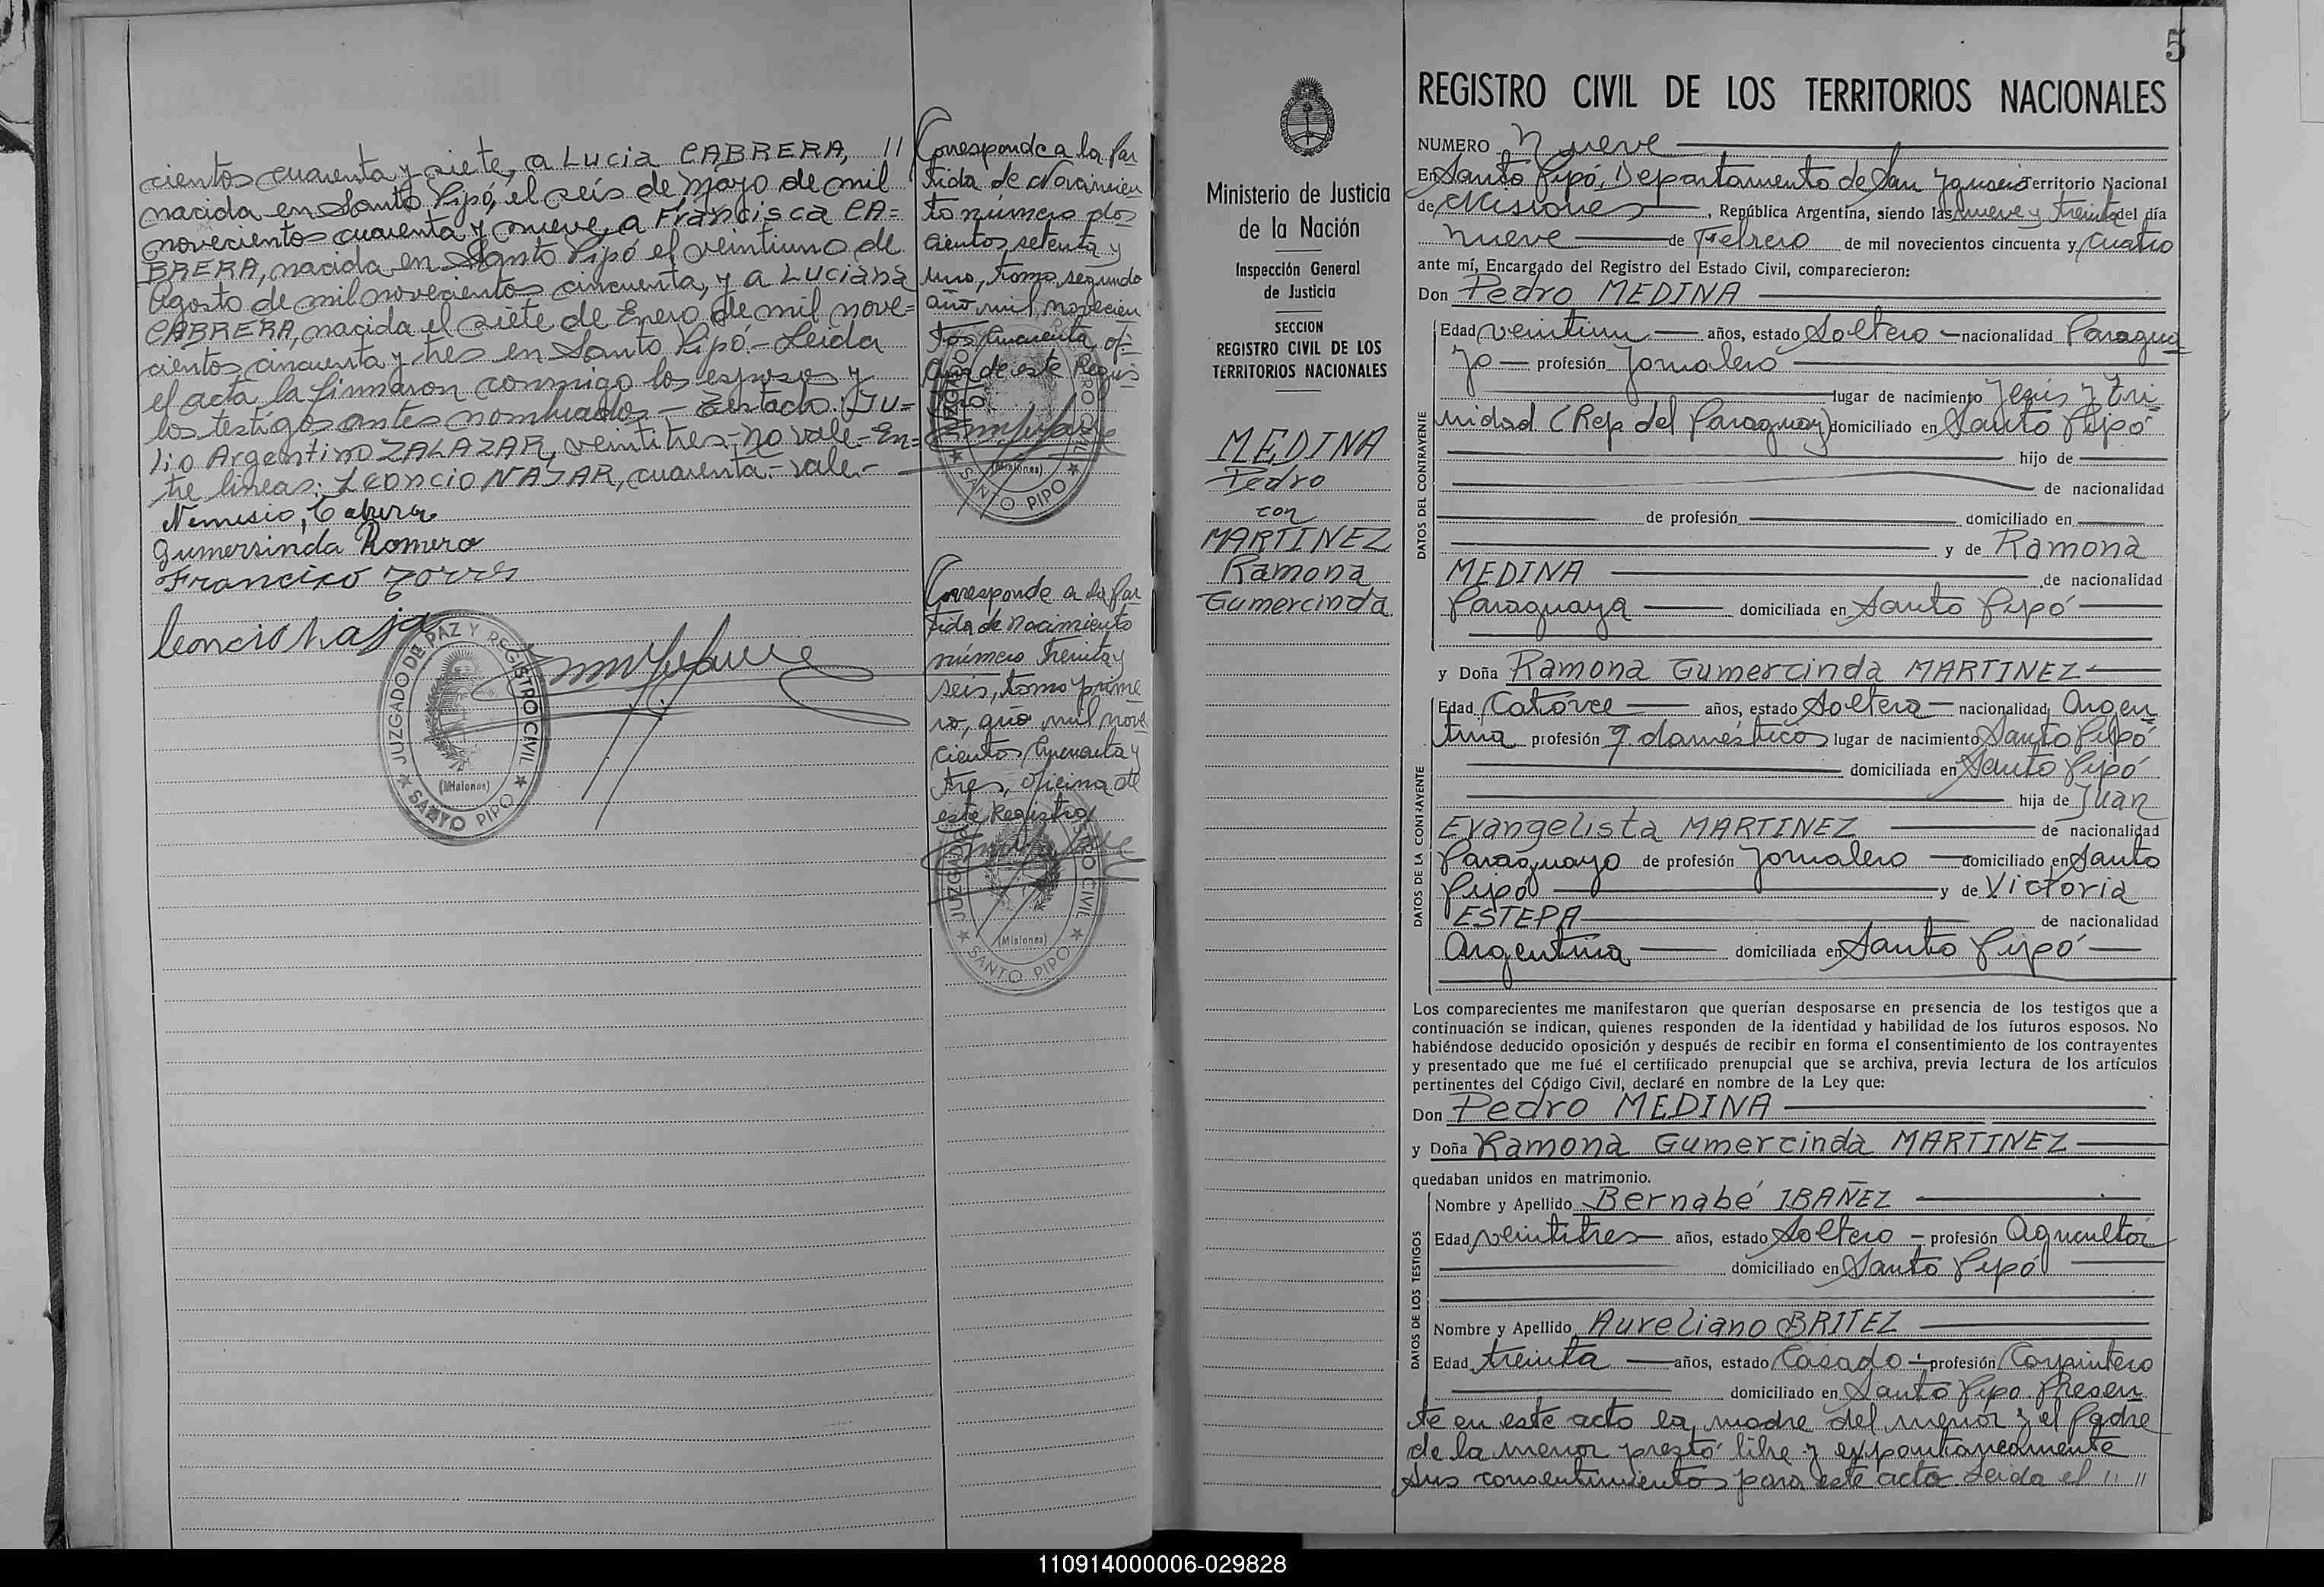 cientos cuarenta y siete, a Lucia CABRERA, //
nacida en Santo Pipó, el seis de Mayo de mil
novecientos cuarenta y nueve, a Francisca CA=
BRERA, nacida en Santo Pipó el veintiuno de
Agosto de mil novecientos cincuenta, y a Luciana
CABRERA, nacida el siete de Enero de mil nove=
cientos cincuenta y tres en Santo Pipó.- Leida
el acta la firmaron conmigo los esposos y
los testigos antes nombrados.- Testado: Ju=
lio Argentino ZALAZAR, veintitres- no vale- En=
tre lineas: Leoncio NAJAR, cuarenta.- vale.-
Nemesio, Cabrera
Gumersinda Romero
Francisco Torres
leoncio Najar
JUZGADO DE PAZ Y REGISTRO CIVIL
(Misiones)
SANTO PIPO
Corresponde a la Par
tida de Nacimien
to número dos
cientos setenta y
uno, tomo segundo
año mil novecien
tos cincuenta, ofi=
cina de este Regis
tro.
JUZGADO
REGISTRO CIVIL
(Misiones)
SANTO PIPO
Corresponde a la Par
tida de nacimiento
número treinta y
seis, tomo prime
ro, año mil nove
cientos cincuenta y
tres, oficina de
este Registro
JUZGADO
REGISTRO CIVIL
(Misiones)
SANTO PIPO
Ministerio de Justicia
de la Nación
Inspección General
de Justicia
SECCION
REGISTRO CIVIL DE LOS
TERRITORIOS NACIONALES
MEDINA
Pedro
con
MARTINEZ
Ramona
Gumercinda
5
REGISTRO CIVIL DE LOS TERRITORIOS NACIONALES
NUMERO Nueve
En Santo Pipó, Departamento de San Ygnacio Territorio Nacional
de Misiones, República Argentina, siendo las nueve y treinta del día
nueve de Febrero de mil novecientos cincuenta y cuatro
ante mí, Encargado del Registro del Estado Civil, comparecieron:
Don Pedro MEDINA
DATOS DEL CONTRAYENTE
Edad veintiun años, estado Soltero nacionalidad Paragua
yo profesión Jornalero
lugar de nacimiento Jesús y Tri
nidad (Rep del Paraguay) domiciliado en Santo Pipó
hijo de
de nacionalidad
de profesión domiciliado en
y de Ramona
MEDINA de nacionalidad
Paraguaya domiciliada en Santo Pipó
y Doña Ramona Gumercinda MARTINEZ
DATOS DE LA CONTRAYENTE
Edad Catorce años, estado Soltera nacionalidad Argen
tina profesión q. domésticos lugar de nacimiento Santo Pipó
domiciliada en Santo Pipó
hija de Juan
Evangelista MARTINEZ de nacionalidad
Paraguayo de profesión Jornalero domiciliado en Santo
Pipó y de Victoria
ESTEPA de nacionalidad
Argentina domiciliada en Santo Pipó
Los comparecientes me manifestaron que querían desposarse en presencia de los testigos que a
continuación se indican, quienes responden de la identidad y habilidad de los futuros esposos. No
habiéndose deducido oposición y después de recibir en forma el consentimiento de los contrayentes
y presentado que me fué el certificado prenupcial que se archiva, previa lectura de los artículos
pertinentes del Código Civil, declaré en nombre de la Ley que:
Don Pedro MEDINA
y Doña Ramona Gumercinda MARTINEZ
quedaban unidos en matrimonio.
DATOS DE LOS TESTIGOS
Nombre y Apellido Bernabé IBAÑEZ
Edad veintitres años, estado Soltero profesión Agricultor
domiciliado en Santo Pipó
Nombre y Apellido Aureliano BRITEZ
Edad treinta años, estado Casado profesión Carpintero
domiciliado en Santo Pipó. Presen
te en este acto la madre del menor y el Padre
de la menor prestó libre y expontaneamente
sus consentimientos para este acto. Leida el // //
110914000006-029828